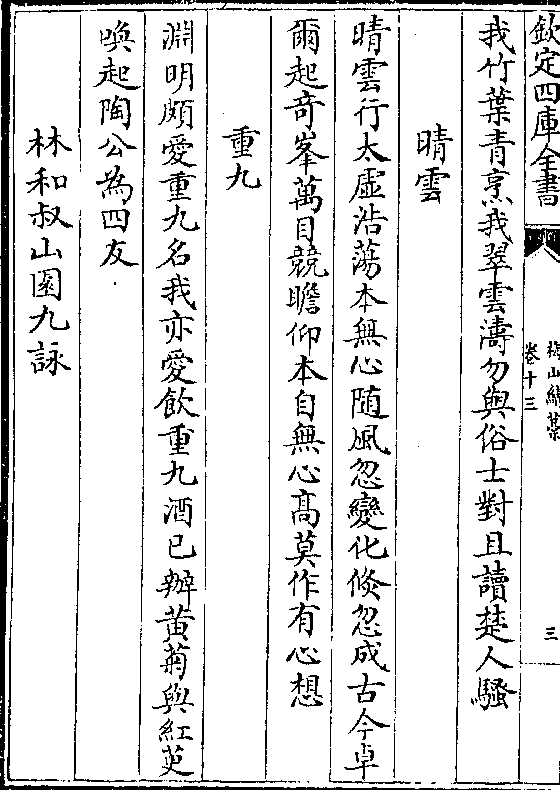 欽定四庫全書
梅山續藁
卷十三
三
我竹葉青烹我翠雲濤勿與俗士對且讀楚人騷
晴雲
晴雲行太虛浩蕩本無心随風忽變化倐忽成古今卓
爾起奇峯萬目競瞻仰本自無心髙莫作有心想
重九
淵明頗愛重九名我亦愛飲重九酒已辦黄菊與紅萸
喚起陶公為四友
林和叔山園九詠